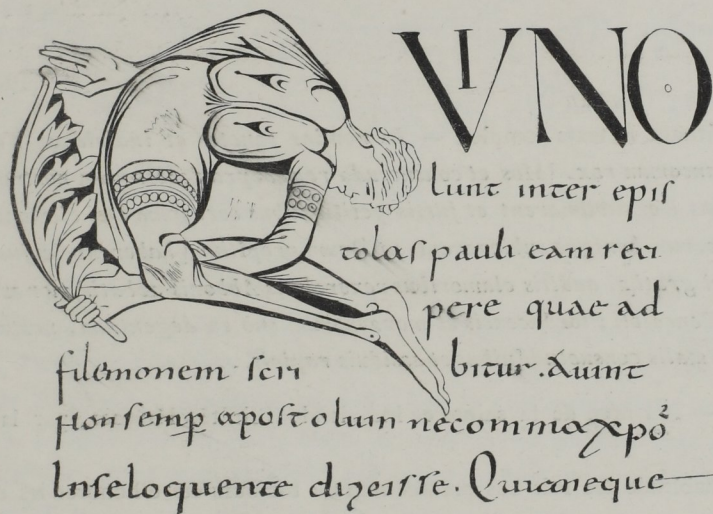 QVI NO
lunt inter epis
tolas pauli eam reci
pere quae ad
filemonem scri bitur. Aiunt
Non semp apostolum nec omnia xpo
In se loquente dixisse. Quia neque